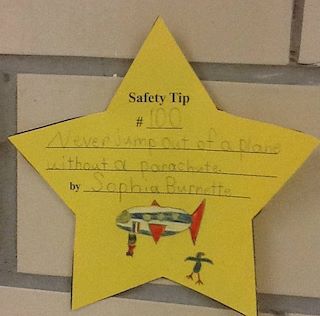 Safety Tip
# 100
Never jump out of a plane
without a parachute.
by Sophia Burnette